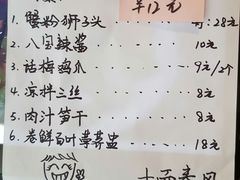 半12元
1. 蟹粉狮子头 每:28元
2. 八宝辣酱 10元
3. 话梅鸡爪 9元/2个
4. 凉拌三丝 8元
5. 肉汁笋干 8元
6. 卷鲜百叶荠菜 18元